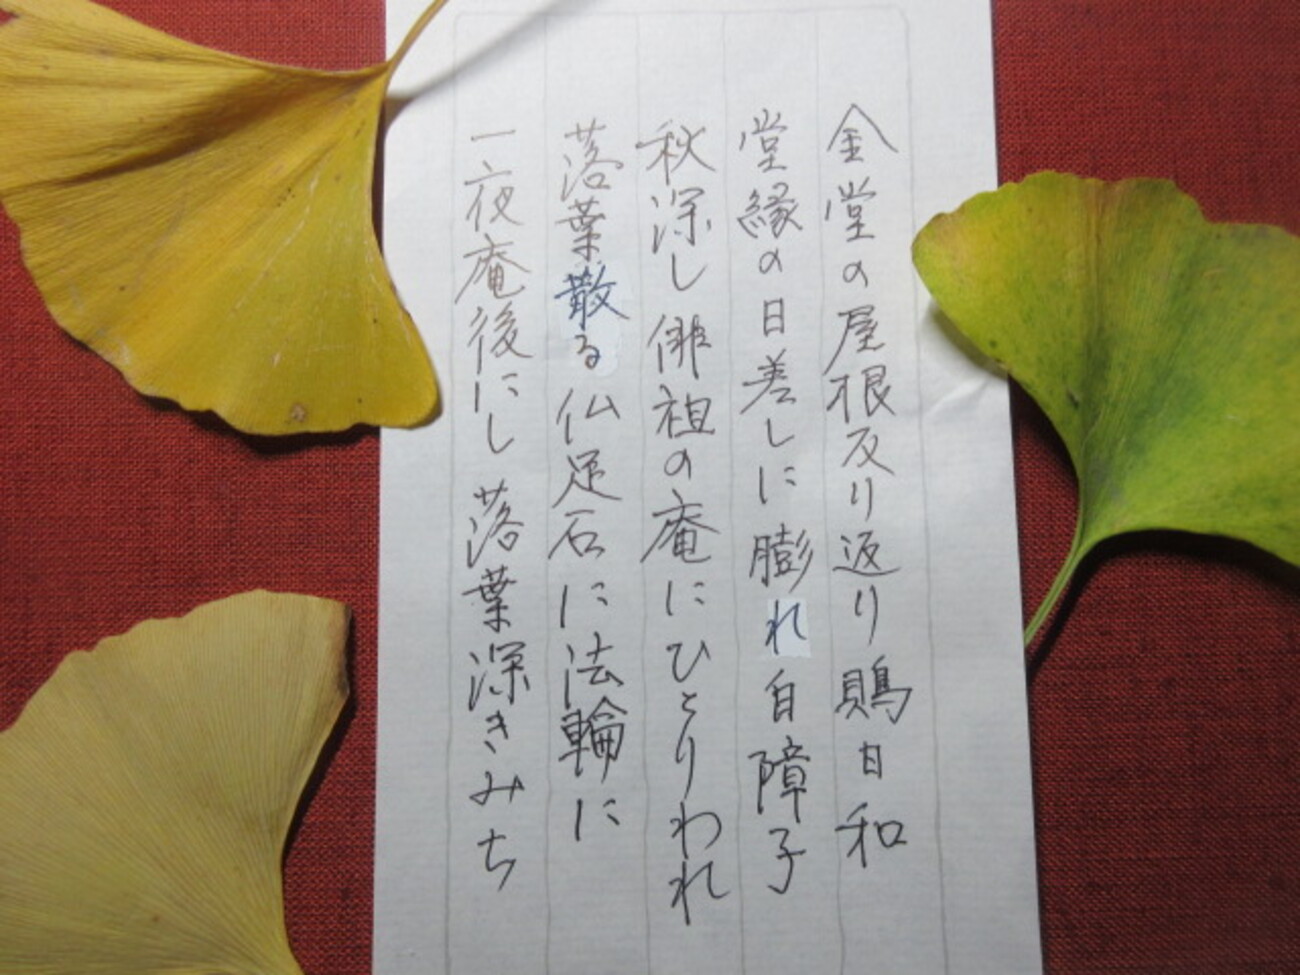 金堂の屋根反り返り鵙日和
堂縁の日差しに膨れ白障子
秋深し俳祖の庵にひとりわれ
落葉散る仏足石に法輪に
一夜庵後にし落葉深きみち